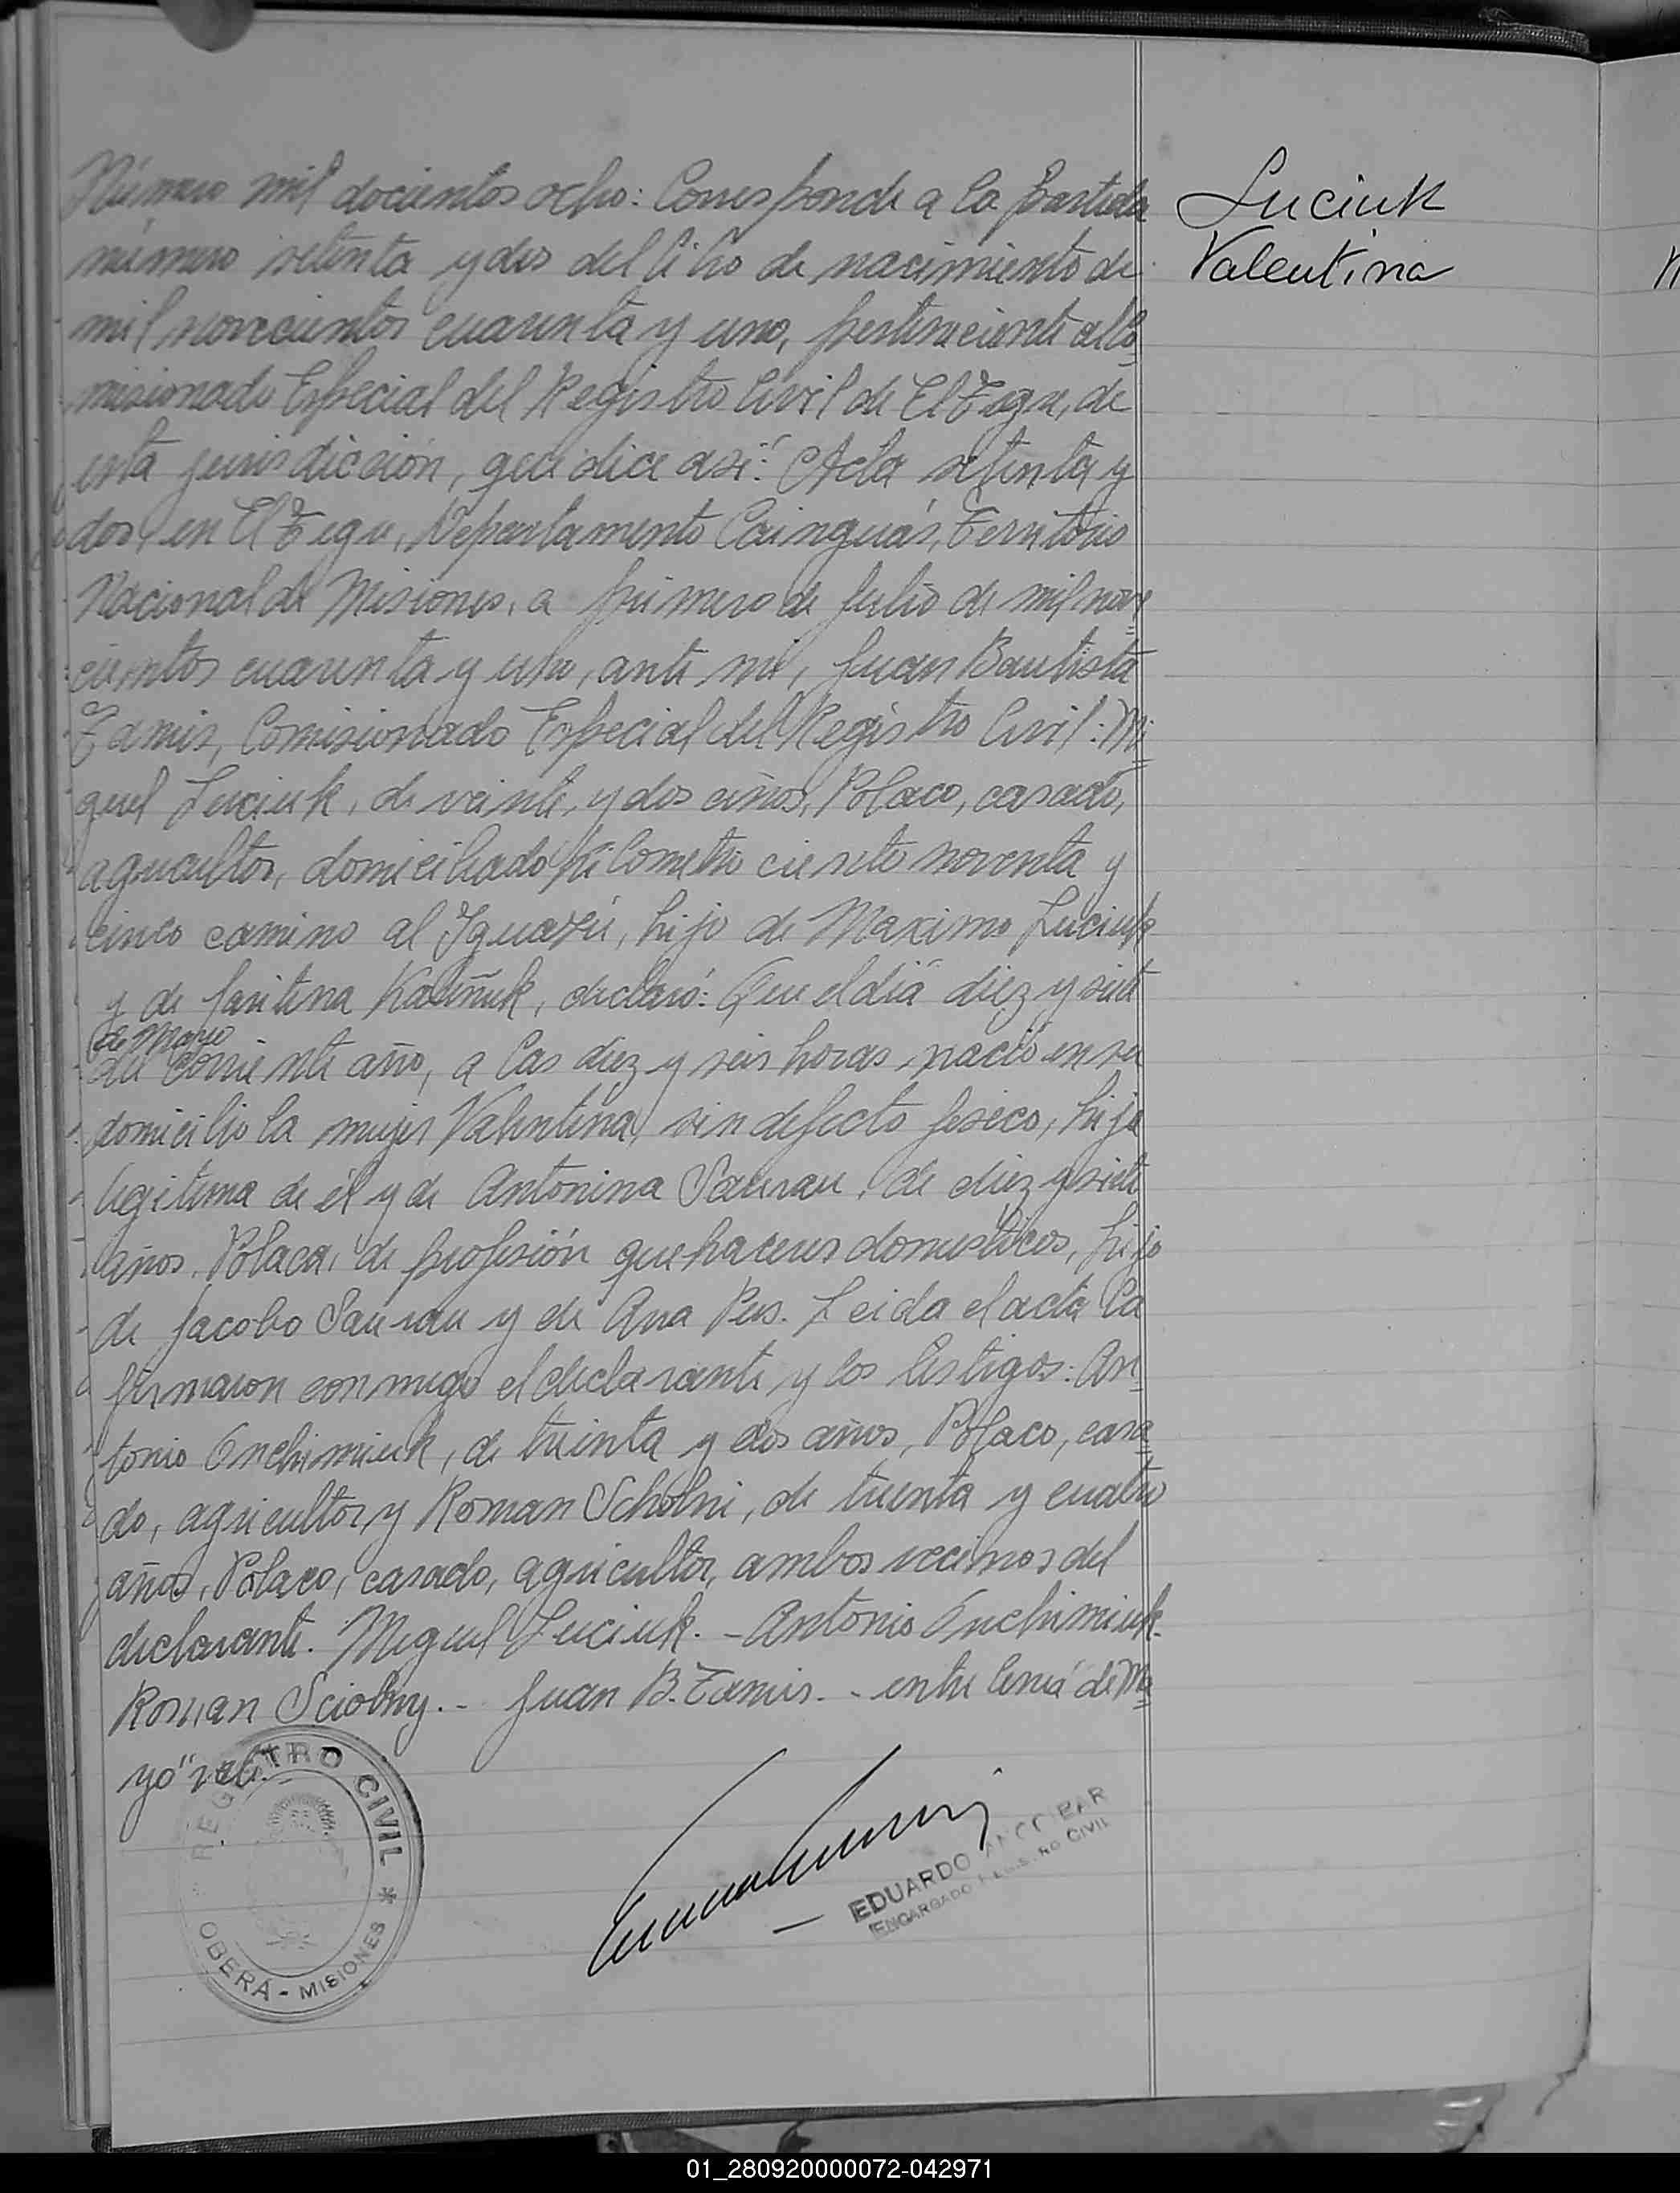 Número mil docientos ocho: Corresponde a la partida
número setenta y dos del libro de nacimiento de
mil novecientos cuarenta y uno, perteneciente al Co-
misionado Especial del Registro Civil de El Tigre, de
esta jurisdicción, que dice asi: Acta setenta y
dos, en El Tigre, Departamento Cainguás, Territorio
Nacional de Misiones, a primero de Julio de mil nove
cientos cuarenta y uno, ante mi, Juan Bautista
Comisionado Especial del Registro Civil: Mi
guel Luciuk, de veinte y dos años, Polaco, casado,
agricultor, domiciliado Kilometro ciento noventa y
cinco camino al Iguazú, hijo de Maximo Luciuk
y de declaró: Que el dia diez y siete
de Mayo
del corriente año, a las diez y seis horas nació en su
domicilio la mujer Valentina, sin defecto fisico, hija
legitima de él y de Antonina de diez y siete
años, Polaca, de profesión quehaceres domesticos, hija
de Jacobo y de Ana Leida el acta la
firmaron conmigo el declarante y los testigos: An-
tonio Onchimiuk, de treinta y dos años, Polaco, casa
do, agricultor y Roman Scholni, de treinta y cuatro
años, Polaco, casado, agricultor, ambos vecinos del
declarante. Miguel Luciuk. - Antonio Onchimiuk.
Roman Sciolny. - Juan B. - entre linea "de Ma
yo" vale.
Luciuk
Valentina
REGISTRO CIVIL *
OBERÁ - MISIONES
EDUARDO
ENCARGADO REGISTRO CIVIL
01_280920000072-042971